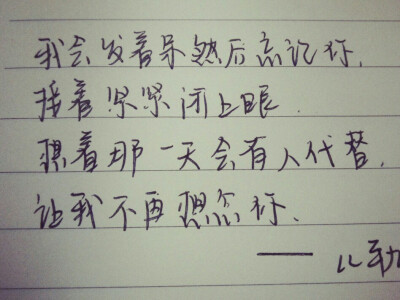 我会发着呆然后忘记你,
接着紧紧闭上眼.
想着那一天会有人代替,
让我不再想念你.
——